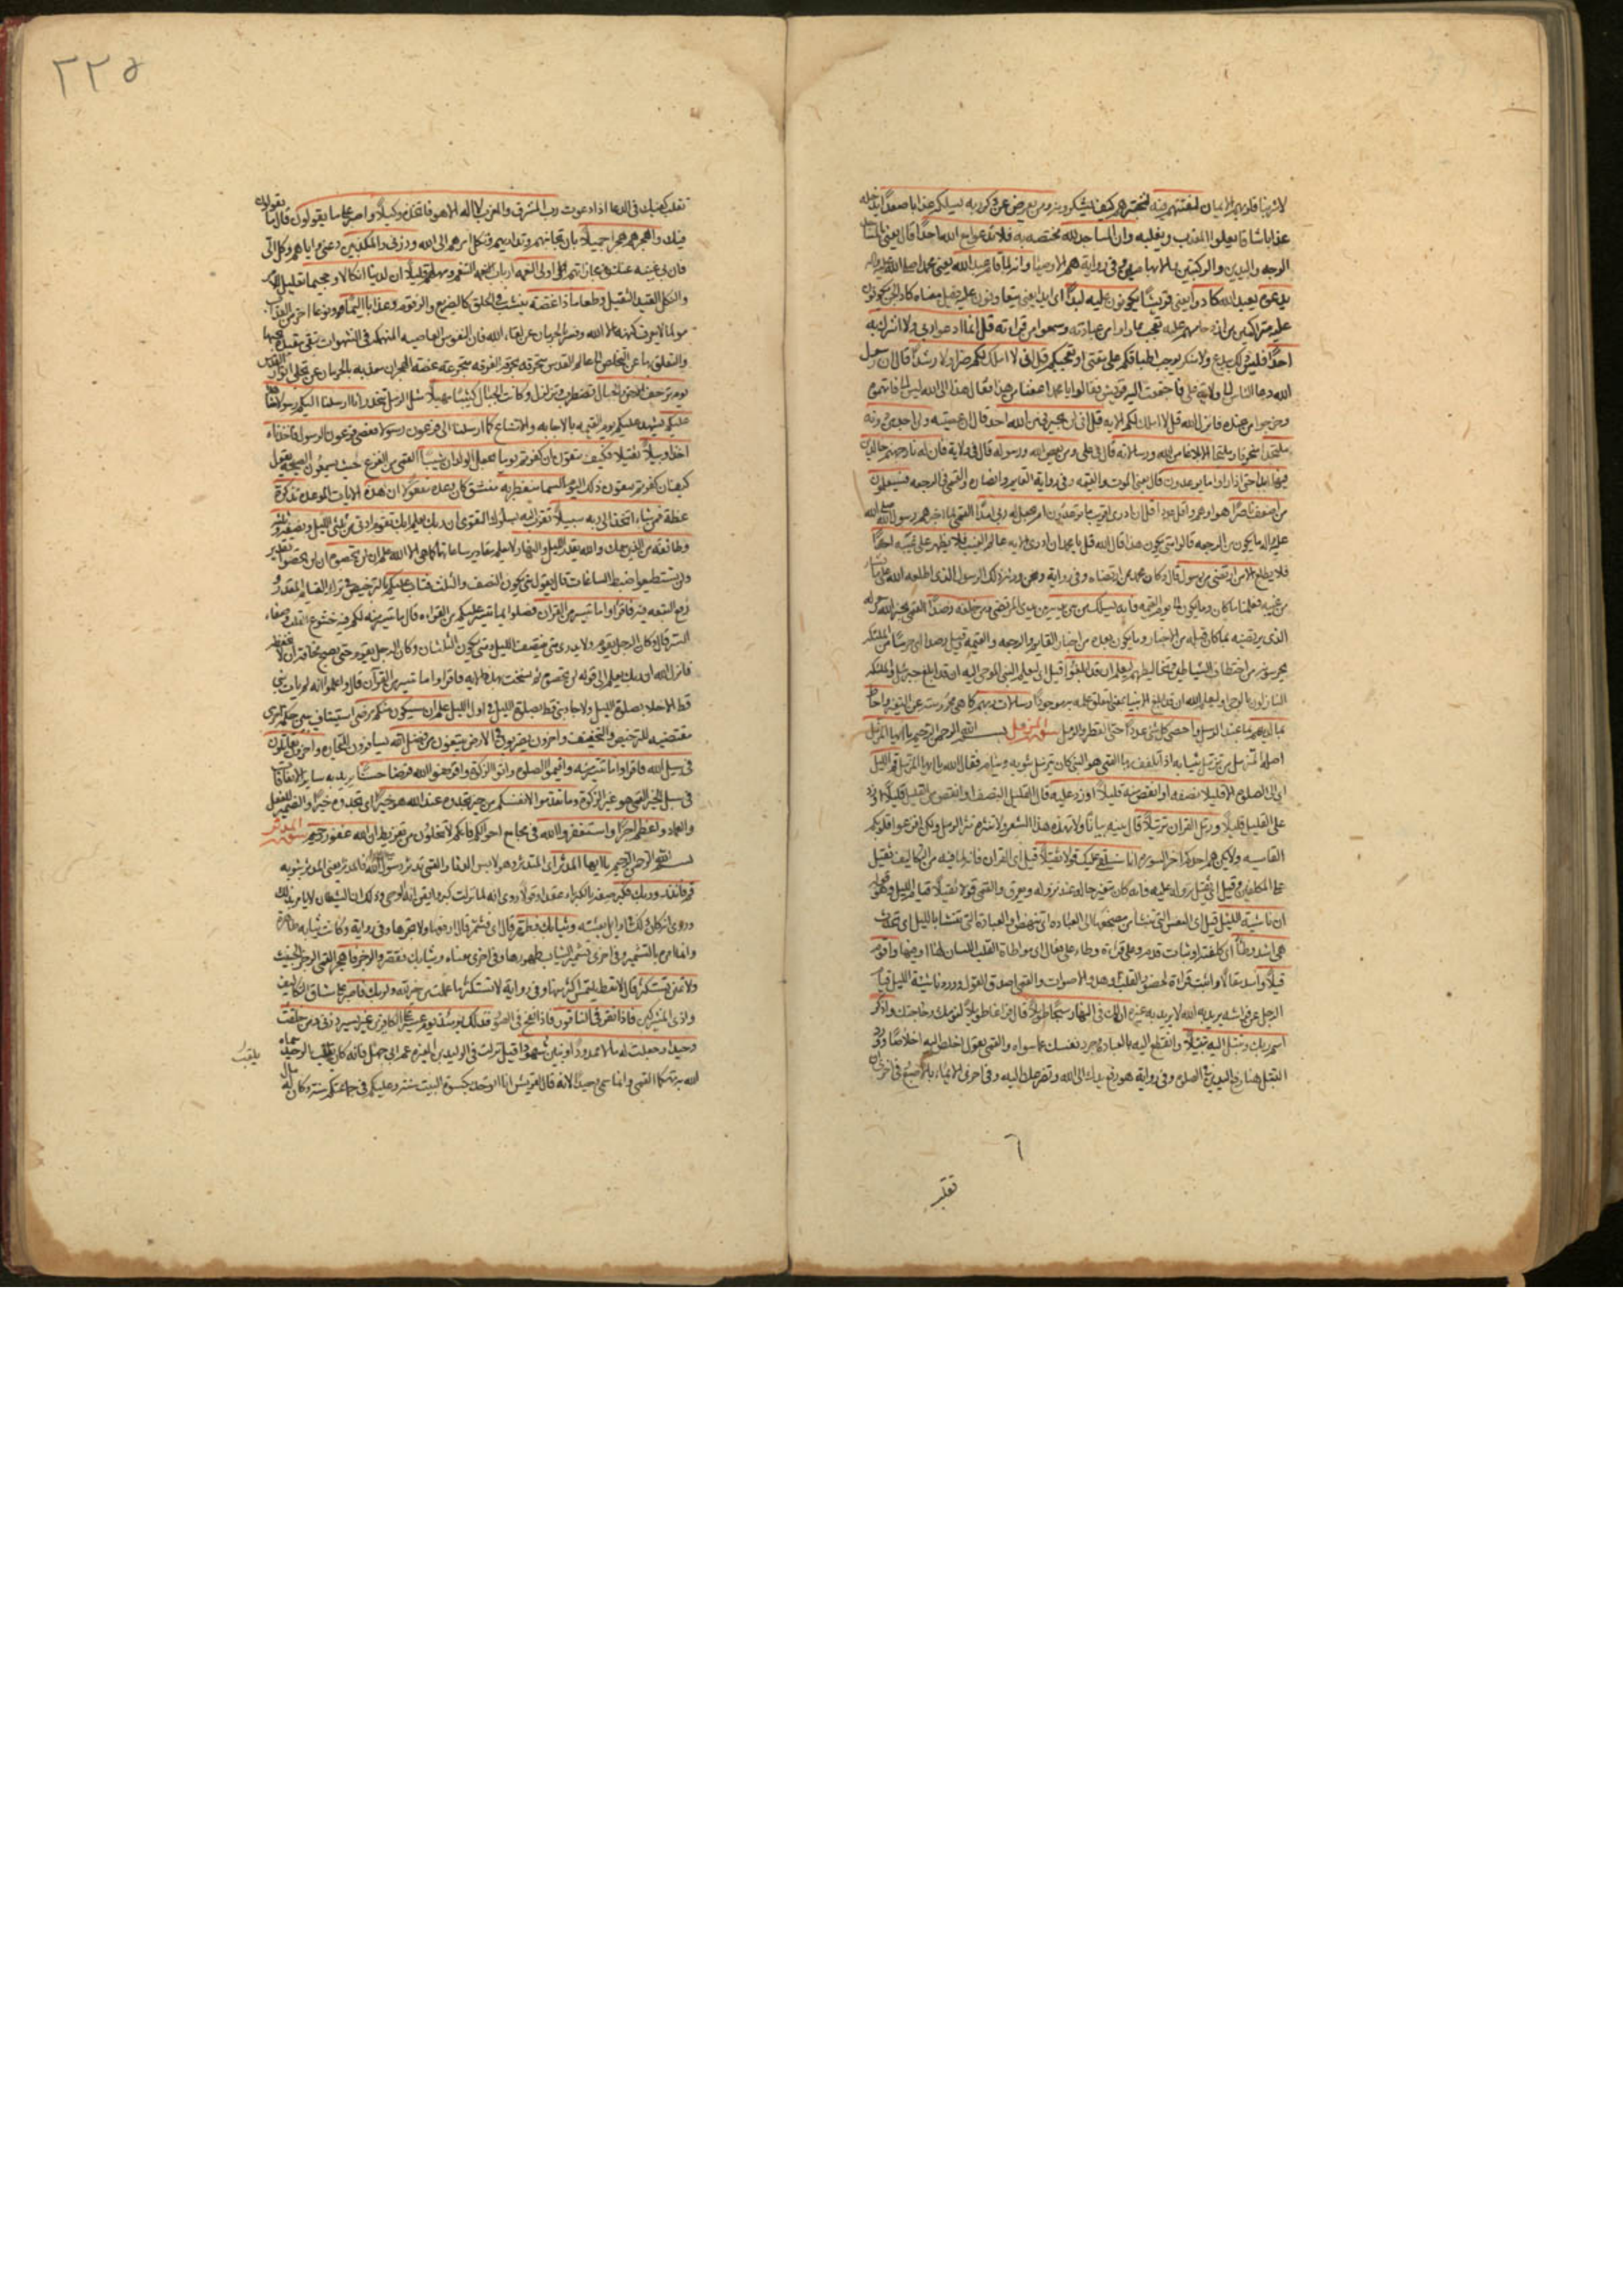 لاشربنا قلوبهم الايمان لنفتنهم فيه لنختبرهم كيف يشكرونه ومن يعرض عن ذكر ربه يسلكه عذابا صعدا يدخله
عذابا شاقا يعلو المعذب ويغلبه وان المساجد لله مختصة به فلا تدعوا مع الله احدا قال يعني بالمساجد
الوجه واليدين والركبتين والابهامين وفي رواية هم الاوصياء وانه لما قام عبد الله يعني محمدا صلى الله عليه واله
يدعوه يعبد الله كادوا يعني قريشا يكونون عليه لبدا اي ايدا يعني يتعاونون عليه وقيل معناه كاد الجن يكونون
عليه متراكمين من ازدحامهم عليه تعجبا مما راوا من عبادته وسمعوا من قراءته قل انما ادعوا ربي ولا اشرك به
احدا فليس ذلك ببدع ولا منكر يوجب اطباقكم على مقتي او تعجبكم قل اني لا املك لكم ضرا ولا رشدا قال ان رسول
الله دعا الناس الى ولاية علي فاجتمعت اليه قريش فقالوا يا محمد اعفنا من هذا فقال هذا الى الله ليس الي فاتهموه
وخرجوا من عنده فانزل الله قل لا املك لكم الاية قل اني لن يجيرني من الله احد قال ان عصيته ولن اجد من دونه
ملتحدا منحرفا وملتجا الا بلاغا من الله ورسالاته قال في علي ومن يعص الله ورسوله قال في ولاية فان له نار جهنم خالدين
فيها ابدا حتى اذا راوا ما يوعدون قال يعني الموت والقيمة وفي رواية القايم وانصاره والقمي في الرجعه فسيعلمون
من اضعف ناصرا واقل عددا قل ان ادري اقريب ما توعدون ام يجعل له ربي امدا القمي لما اخبرهم رسول الله صلى الله
عليه واله ما يكون من الرجعه قالوا متى يكون هذا قال الله قل يا محمد ان ادري الاية عالم الغيب فلا يظهر على غيبه احدا
فلا يطلع الا من ارتضى من رسول قال وكان محمد ممن ارتضاه وفي رواية ونحن ورثة ذلك الرسول الذي اطلعه الله على ما يشاء
من غيبه فعلمنا ما كان وما يكون الى يوم القيمه فانه يسلك من بين يديه ومن خلفه رصدا القمي يخبر الله رسوله
الذي يرتضيه بما كان قبله من الاخبار وما يكون بعده من اخبار القايم والرجعه والقيمه وقيل رصدا اي حرسا من الملئكه
يحرسونه من اختطاف الشياطين وتخاليطهم ليعلم ان قد ابلغوا قيل اي ليعلم النبي الموحى اليه ان قد ابلغ جبرئيل والملئكه
النازلون بالوحي او ليعلم الله ان قد ابلغ الانبياء بمعنى ليتعلق علمه به موجودا رسالات ربهم كما هي محروسة عن التغيير واحاط
بما لديهم بما عند الرسل واحصى كل شئ عددا حتى القطر والرمل سورة المزمل بسم الله الرحمن الرحيم يا ايها المزمل
اصله المتزمل من تزمل بثيابه اذا تلفف بها القمي هو النبي كان يتزمل بثوبه وينام فقال الله يا ايها المزمل قم الليل
اي الى الصلوة الا قليلا نصفه او انقص منه قليلا او زد عليه قال القليل النصف او انقص من القليل قليلا او زد
على القليل قليلا ورتل القران ترتيلا قال بينه بيانا ولا تهذه هذ الشعر ولا تنثره نثر الرمل ولكن افزعوا قلوبكم
القاسيه ولا يكن هم احدكم اخر السوره انا سنلقي عليك قولا ثقيلا قيل اي القران فانه لما فيه من التكاليف ثقيل
على المكلفين وقيل اي ثقيل نزوله عليه فانه كان يتغير حاله عند نزوله ويعرق والقمي قولا ثقيلا قيام الليل وهو قوله
ان ناشئة الليل قيل اي النفس التي تنشا من مضجعها الى العبادة اي تنهض او العبادة التي تنشا بالليل اي تحدث
هي اشد وطئا اي كلفة او ثبات قدم وعلى قراءة وطاء على فعال اي مواطاة القلب اللسان لها او فيها واقوم
قيلا واسد مقالا واثبت قراءة لحضور القلب وهدو الاصوات والقمي اصدق القول وورد ناشئة الليل قيام
الرجل عن فراشه يريد به الله لا يريد به غيره ان لك في النهار سبحا طويلا قال فراغا طويلا لنومك وحاجتك واذكر
اسم ربك وتبتل اليه تبتيلا وانقطع اليه بالعبادة وجرد نفسك عما سواه والقمي يقول اخلص اليه اخلاصا وورد
التبتل هنا رفع اليدين في الصلوة وفي رواية هو رفع يديك الى الله وتضرعك اليه وفي اخرى الايماء بالاصبع وفي اخرى ان
٦
تقلب
٢٢٥
تقلب كفيك في الدعا اذا دعوت رب المشرق والمغرب لا اله الا هو فاتخذه وكيلا واصبر على ما يقولون قال ما يقولون
فيك واهجرهم هجرا جميلا بان تجانبهم وتداريهم وتكل امرهم الى الله وذرني والمكذبين دعني واياهم وكل الي
فان بي غنية عنك في مجازاتهم اولي النعمة ارباب التنعم ومهلهم قليلا ان لدينا انكالا وجحيما تعليل للامر
والنكل القيد الثقيل وطعاما ذا غصة ينشب في الحلق كالضريع والزقوم وعذابا اليما ونوعا اخر من العذاب
مولما لا يعرف كنهه الا الله وفسر بالحرمان عن لقاء الله فان النفوس العاصيه المنهمكة في الشهوات تبقى مقيدة بحبها
والتعلق بها عن التخلص الى عالم القدس متحرقة بحرقة الفرقة متجرعة غصة الهجران معذبه بالحرمان عن تجلي انوار القدس
يوم ترجف الارض والجبال تضطرب وتزلزل وكانت الجبال كثيبا مهيلا مثل الرمل تنحدر انا ارسلنا اليكم رسولا شاهدا
عليكم يشهد عليكم يوم القيمه بالاجابه والامتناع كما ارسلنا الى فرعون رسولا فعصى فرعون الرسول فاخذناه
اخذا وبيلا ثقيلا فكيف تتقون ان كفرتم يوما يجعل الولدان شيبا القمي من الفزع حيث يسمعون الصيحه يقول
كيف ان كفرتم تتقون ذلك اليوم السما منفطر به منشق كان وعده مفعولا ان هذه الايات الموعده تذكرة
عظة فمن شاء اتخذ الى ربه سبيلا تقرب اليه بسلوك التقوى ان ربك يعلم انك تقوم ادنى من ثلثي الليل ونصفه وثلثه
وطائفة من الذين معك والله يقدر الليل والنهار لا يعلم مقادير ساعاتهما كما هي الا الله علم ان لن تحصوه ان لن تحصوا تقدير
ولن تستطيعوا ضبط الساعات قال يقول متى يكون النصف والثلث فتاب عليكم بالترخيص في ترك القيام المقدر و
رفع التبعه فيه فاقراوا ما تيسر من القران فصلوا بما تيسر عليكم من القراءه قال ما تيسر منه لكم فيه خشوع القلب وصفاء
السر قال وكان الرجل يقوم ولا يدري متى ينتصف الليل ومتى يكون الثلثان وكان الرجل يقوم حتى يصبح مخافة ان لا يحفظه
فانزل الله ان ربك يعلم الى قوله لن تحصوه نسخت هذه الاية فاقراوا ما تيسر من القرآن قال واعلموا انه لم يات نبي
قط الا خلا بصلوة الليل ولا جا نبي قط بصلوة الليل في اول الليل علم ان سيكون منكم مرضى استيناف يبين حكمة اخرى
مقتضيه للترخيص والتخفيف واخرون يضربون في الارض يبتغون من فضل الله يسافرون للتجاره واخرون يقاتلون
في سبيل الله فاقراوا ما تيسر منه واقيموا الصلوة واتوا الزكوة واقرضوا الله قرضا حسنا يريد به ساير الانفاقات
في سبل الخير القمي هو غير الزكوة وما تقدموا لانفسكم من خير تجدوه عند الله هو خيرا اي تجدوه خيرا والضمير للفصل
والعماد واعظم اجرا واستغفروا الله في مجامع احوالكم فانكم لا تخلون من تفريط ان الله غفور رحيم سورة المدثر
بسم الله الرحمن الرحيم يا ايها المدثر اي المتدثر وهو لابس الدثار القمي تدثر رسول الله فالمدثر يعني المدثر بثوبه
قم فانذر وربك فكبر وصفه بالكبرياء عقدا وقولا روي انه لما نزلت كبر وايقن انه الوحي وذلك ان الشيطان لا يامر بذلك
وثيابك فطهر قال اي فشمر قال ارفعها ولا تجرها وفي رواية وكانت ثيابه طاهرة
وانما امره بالتشمير وفي اخرى تشمير الثياب طهورها وفي اخرى معناه وثيابك فقصر والرجز فاهجر القمي الرجز الخبيث
ولا تمنن تستكثر قال لا تعط تلتمس اكثر منها وفي رواية لا تستكثر ما عملت من خير لله ولربك فاصبر على مشاق التكاليف
واذى المشركين فاذا نقر في الناقور فاذا نفخ في الصور فذلك يومئذ يوم عسير على الكافرين غير يسير ذرني ومن خلقت
وحيدا وجعلت له مالا ممدودا وبنين شهودا قيل نزلت في الوليد بن المغيره عم ابي جهل فانه كان يلقب بالوحيد سماه
الله به تهكما القمي وانما سمي وحيدا لانه قال لقريش انا اتوحد بكسوة البيت سنة وعليكم في جماعتكم سنة وكان له مال
يلقب